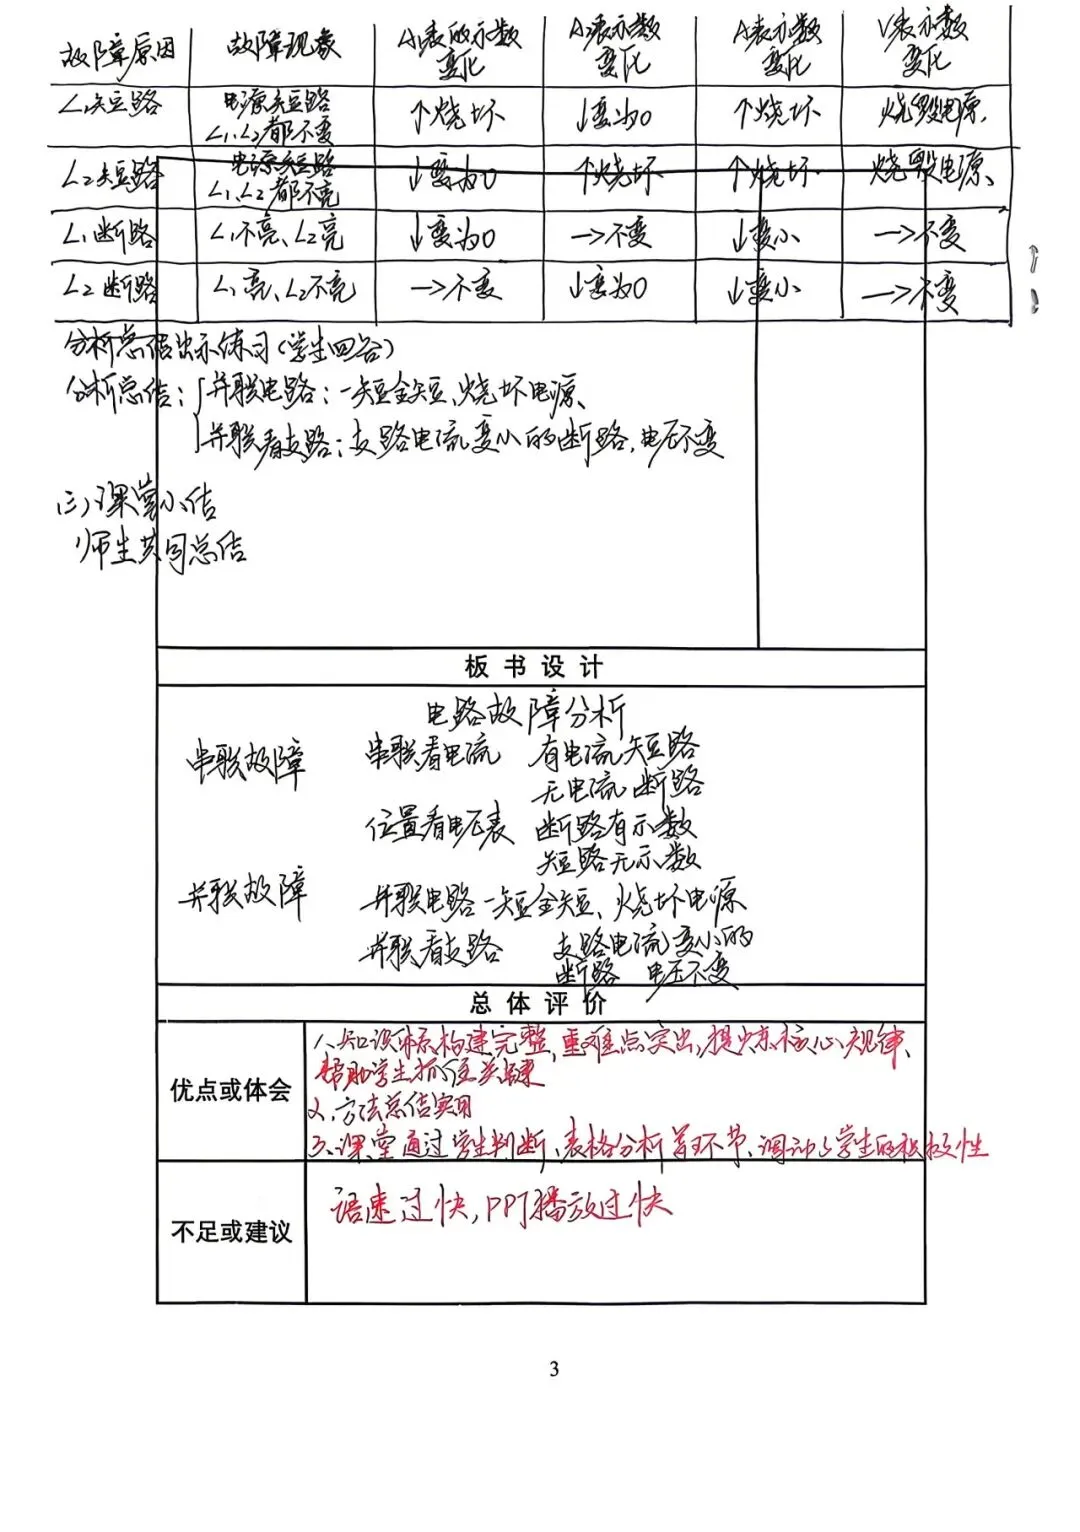 故障原因 故障现象 A₁表的示数变化 A₂表示数变化 A表示数变化 V表示数变化
L₁短路 电源短路 L₁、L₂都不变 ↑烧坏 ↓变为0 ↑烧坏 烧毁电源、
L₂短路 电源短路 L₁、L₂都不亮 ↓变为0 ↑烧坏 ↑烧坏 烧毁电源、
L₁断路 L₁不亮、L₂亮 ↓变为0 →不变 ↓变小 →不变
L₂断路 L₁亮、L₂不亮 →不变 ↓变为0 ↓变小 →不变
分析总结出示练习(学生回答)
分析总结:并联电路:一短全短、烧坏电源、
并联看支路:支路电流变小的断路,电压不变
(三)课堂小结
师生共同总结
板书设计
电路故障分析
串联故障 串联看电流 有电流短路
无电流断路
位置看电压表 断路有示数
短路无示数
并联故障 并联电路一短全短、烧坏电源
并联看支路 支路电流变小的
断路 电压不变
总体评价
优点或体会
1、知识体系构建完整,重难点突出,提炼核心规律、
帮助学生抓住关键
2、方法总结实用
3、课堂通过学生判断、表格分析等环节、调动了学生的积极性
不足或建议
语速过快,PPT播放过快
3